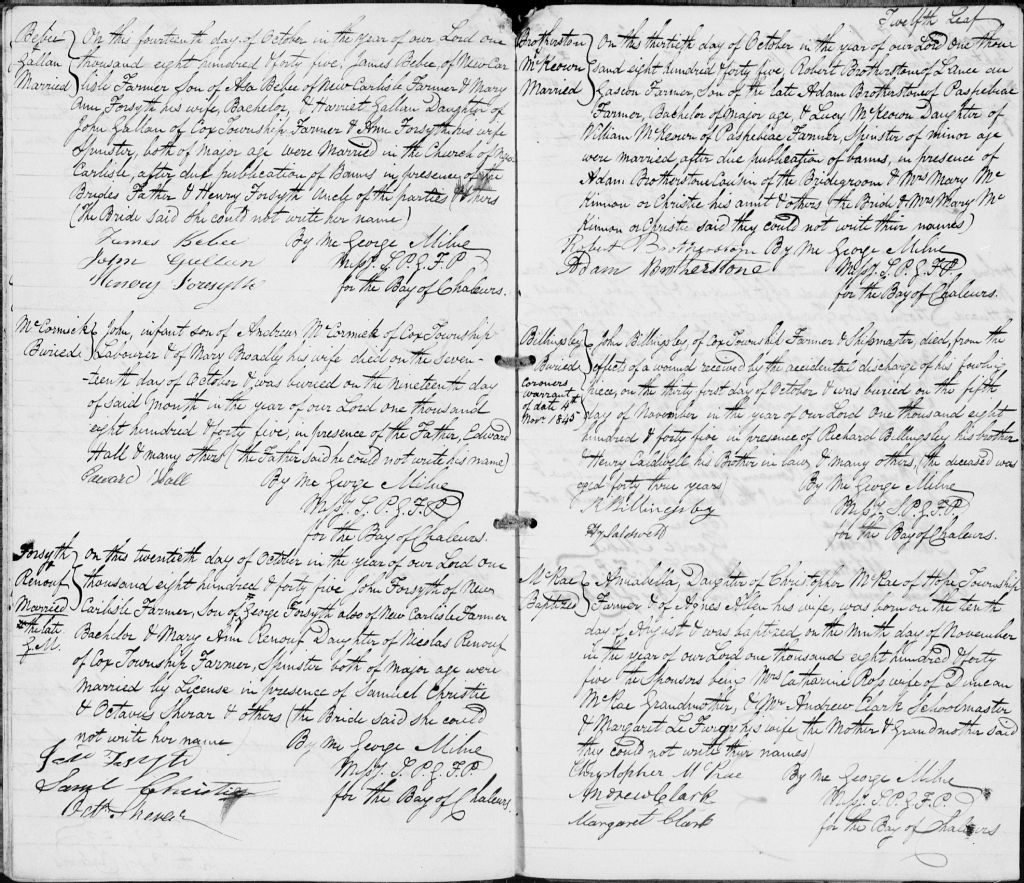 Bebee
Gallan
Married
On this fourteenth day of October in the year of our Lord one
thousand eight hundred & forty five, James Bebee, of New Car
lisle Farmer Son of Asa Bebee of New Carlisle Farmer & Mary
Ann Forsyth his wife, Bachelor, & Harriet Gallan Daughter of
John Gallan of Cox Township Farmer & Ann Forsyth his wife
Spinster, both of Major age were Married in the Church of New
Carlisle, after due publication of Banns in presence of the
Brides Father & Henry Forsyth Uncle of the parties & others
(the Bride said she could not write her name)
James Bebee By Me George Milne
John Gallan Missy. S.P.G.F.P.
Henry Forsyth for the Bay of Chaleurs.
McCormick
Buried
John, infant son of Andrew McCormick of Cox Township
Labourer & of Mary Broadly his wife died on the seven-
-teenth day of October & was buried on the nineteenth day
of said Month in the year of our Lord one thousand
eight hundred & forty five, in presence of the Father, Edward
Hall & many others (the Father said he could not write his name)
Edward Hall By Me George Milne
Missy. S.P.G.F.P.
for the Bay of Chaleurs.
Forsyth
&
Renouf
Married
the late
G.M.
On this twentieth day of October in the year of our Lord one
thousand eight hundred & forty five John Forsyth of New
Carlisle Farmer, Son of George Forsyth also of New Carlisle Farmer
Bachelor & Mary Ann Renouf Daughter of Nicolas Renouf
of Cox Township Farmer, Spinster both of Major age were
married by License in presence of Samuel Christie
& Octavius Sherar & others (the Bride said she could
not write her name)
John Forsyth By Me George Milne
Saml Christie Missy. S.P.G.F.P.
Octs Sherar for the Bay of Chaleurs.
Twelfth Leaf
Brotherston
McKeown
Married
On this thirtieth day of October in the year of our Lord one thou
sand eight hundred & forty five, Robert Brotherston of L'ance au
Gascon Farmer, Son of the late Adam Brotherston of Pasbebiac
Farmer, Bachelor of major age, & Lucy McKeown Daughter of
William McKeown of Pasbebiac Farmer, Spinster of minor age
were married after due publication of banns, in presence of
Adam Brotherstone Cousin of the Bridegroom & Mrs Mary Mc
Kinnon or Christie his aunt & others (the Bride & Mrs Mary Mc
Kinnon or Christie said they could not write their names)
Robert Brotherston By Me George Milne
Adam Brotherstone Missy. S.P.G.F.P.
for the Bay of Chaleurs.
Billingsley
Buried
Coroners
warrant
of date 4th
Novr. 1845
John Billingsley of Cox Township Farmer & Shipmaster, died, from the
effects of a wound received by the accidental discharge of his fowling
piece, on the thirty first day of October & was buried on the fifth
day of November in the year of our Lord one thousand eight
hundred & forty five in presence of Richard Billingsley his brother
& Henry Caldwell his Brother in law, & many others, (the deceased was
aged forty three years By Me George Milne
R Billingsley Missy. S.P.G.F.P.
Hy Caldwell for the Bay of Chaleurs.
McRae
Baptized
Annabella, Daughter of Christopher McRae of Hope Township
Farmer & of Agnes Allen his wife, was born on the tenth
day of August & was baptized on the Ninth day of November
in the year of our Lord one thousand eight hundred & forty
five the Sponsors being Mrs Catharine Ross wife of Duncan
McRae Grandmother, & Mr Andrew Clark Schoolmaster
& Margaret Le his wife (the Mother & Grandmother said
they could not write their names)
Christopher McRae By Me George Milne
Andrew Clark Missy. S.P.G.F.P.
Margaret Clark for the Bay of Chaleurs